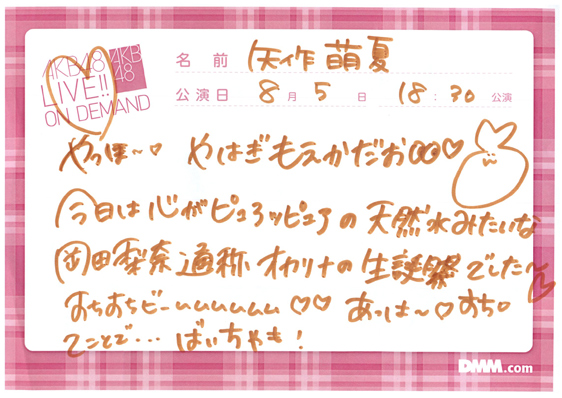 AKB48
LIVE!!
ON DEMAND
AKB
48
名前 矢作萌夏
公演日 8月5日 18:30 公演
やっほ〜♡ やはぎもえかだお♡
今日は心がピュアッピュアの天然水みたいな
岡田梨奈通称オカリナの生誕祭でした〜
おちおちビームムムムムム♡♡ あっは〜♡おち。
てことで…ばいちゃも!
DMM.com